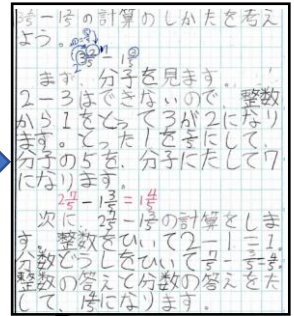 3 2/5 − 1 3/5 の計算のしかたを考え
よう。
3 2/5 − 1 3/5
まず、分子を見ます。
2−3はできないので、整数
から1をとって3が2になり
ます。とった1を5/5にして、
分子の5を、分子にたして7
になります。
2 7/5 − 1 3/5 = 1 4/5
次に、2 7/5 − 1 3/5の計算をしま
す。整数をひいて2−1=1。
分数どうしをひいて7/5−3/5=4/5。
整数の答えと分数の答えをた
して、1 4/5になります。